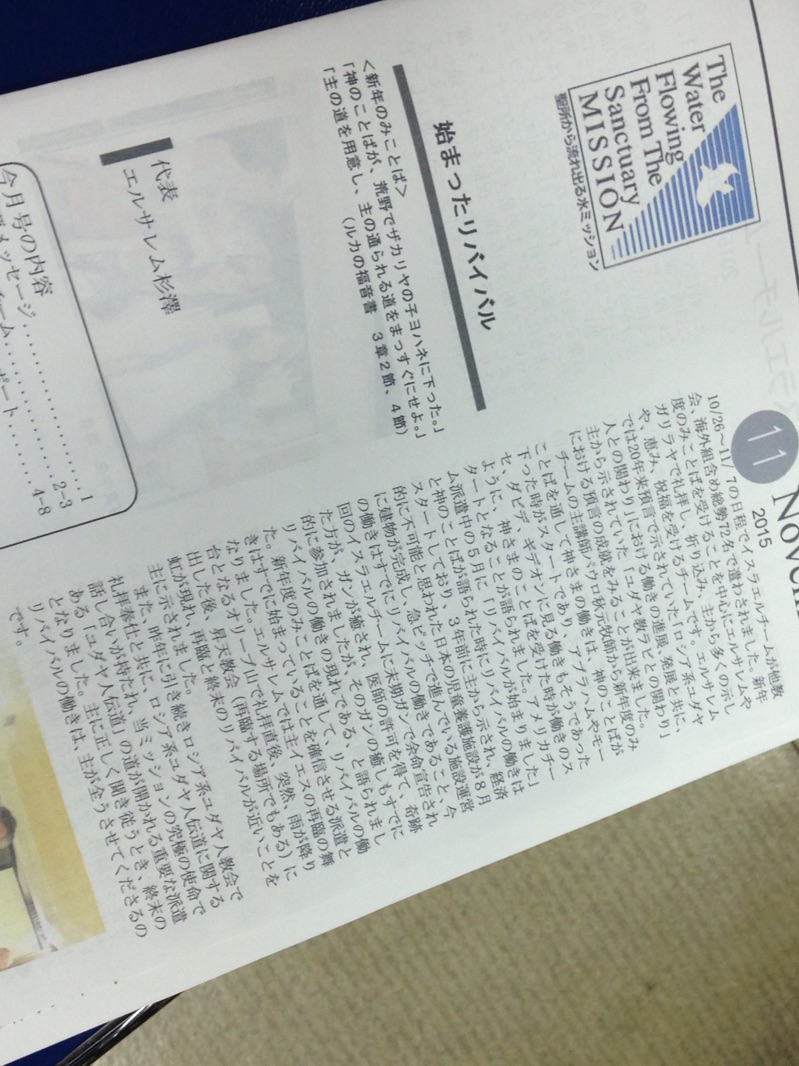 The
Water
Flowing
From The
Sanctuary
MISSION
聖所から流れ出る水ミッション
11
2015
始まったリバイバル
<新年のみことば>
「神のことばが、荒野でザカリヤの子ヨハネに下った。」
「主の道を用意し、主の通られる道をまっすぐにせよ。」
(ルカの福音書 3章2節、4節)
代表
エルサレム杉澤
10/26～11/7の日程でイスラエルチームが他教
会、海外組含め総勢72名で遣わされました。新年
度のみことばを受けることを中心にエルサレムや
ガリラヤで礼拝し、祈り込み、主から多くの示し
や、恵み、祝福を受けるチームです。エルサレム
では20年来預言で示されていた「ロシア系ユダヤ
人との関わり」における働きの進展、発展と共に、
主から示されていた「ユダヤ教ラビとの関わり」
における預言の成就をみることが出来ました。
チームの主講師パウロ秋元牧師から新年度のみ
ことばを通して神さまの働きは、神のことばが
下った時がスタートであり、アブラハムやモー
セ、ダビデ、ギデオンに見る働きもそうであった
ように、神さまのことばを受けた時が働きのス
タートとなることが語られました。アメリカチー
ム派遣中の5月に「リバイバルが始まりました」
と神のことばが語られた時にリバイバルの働きは
スタートしており、3年前に主から示され、経済
的に不可能と思われた日本の児童養護施設が8月
に建物が完成し、急ピッチで進んでいる施設運営
の働きはすでにリバイバルの働きであること、今
回のイスラエルチームに末期ガンで余命宣告され
た方が、ガンが癒され、医師の許可を得て、奇跡
的に参加されましたが、そのガンの癒しもすでに
リバイバルの働きの現れである、と語られまし
た。新年度のみことばを通して、リバイバルの働
きはすでに始まっていることを確信させる派遣と
なりました。エルサレムでは主イエスの再臨の舞
台となるオリーブ山で礼拝直後、突然、雨が降り
出した後、昇天教会(再臨する場所でもある)に
虹が現れ、再臨と終末のリバイバルが近いことを
主に示されました。
また、昨年に引き続きロシア系ユダヤ人教会で
礼拝奉仕と共に、ロシア系ユダヤ人伝道に関する
話し合いが持たれ、当ミッションの究極の使命で
ある「ユダヤ人伝道」の道が開かれる重要な派遣
となりました。主に正しく聞き従うとき、終末の
リバイバルの働きは、主が全うさせてくださるの
です。
今月号の内容
メッセージ 1
チーム 2-3
ポート 4-8